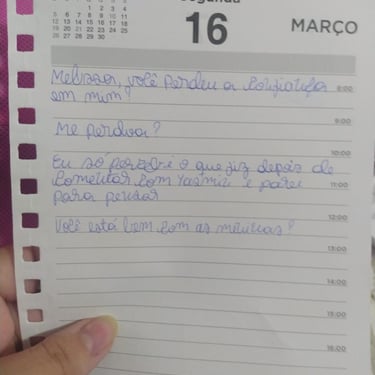 segunda
16
MARÇO
1 2 3 4
5 6 7 8 9 10 11
12 13 14 15 16 17 18
19 20 21 22 23 24 25
26 27 28 29 30
Melissa, você perdeu a confiança 8:00
em mim?
9:00
Me perdoa?
10:00
Eu só percebi o que fiz depois de
comentar com Yasmin e parei 11:00
para pensar
12:00
Você está bem com as meninas?
13:00
14:00
15:00
16:00